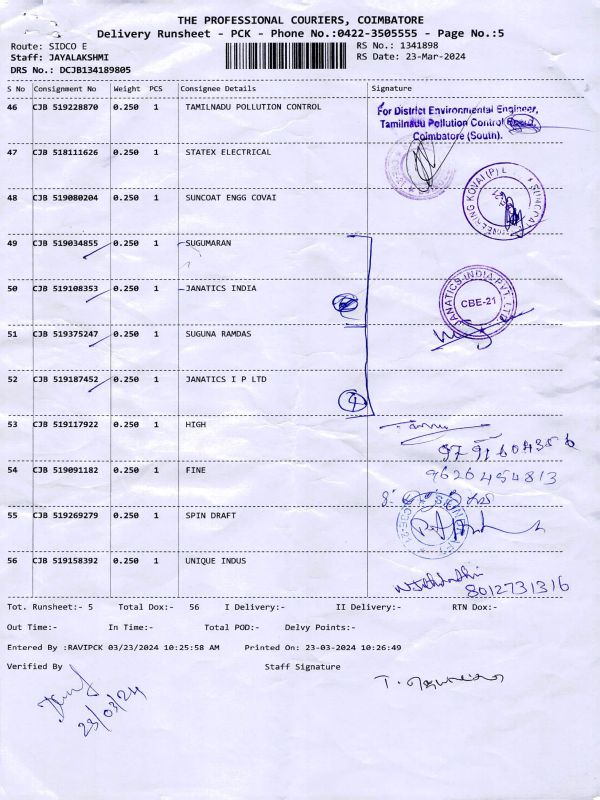 THE PROFESSIONAL COURIERS, COIMBATORE
Delivery Runsheet - PCK - Phone No.:0422-3505555 - Page No.:5
Route: SIDCO E RS No.: 1341898
Staff: JAYALAKSHMI RS Date: 23-Mar-2024
DRS No.: DCJB134189805
S No Consignment No Weight PCS Consignee Details Signature
46 CJB 519228870 0.250 1 TAMILNADU POLLUTION CONTROL
For District Environmental Engineer,
Tamilnadu Pollution Control Board,
Coimbatore (South).
47 CJB 518111626 0.250 1 STATEX ELECTRICAL
48 CJB 519080204 0.250 1 SUNCOAT ENGG COVAI
49 CJB 519034855 0.250 1 SUGUMARAN
50 CJB 519108353 0.250 1 JANATICS INDIA
JANATICS INDIA PVT. LTD
CBE-21
51 CJB 519375247 0.250 1 SUGUNA RAMDAS
52 CJB 519187452 0.250 1 JANATICS I P LTD
4
53 CJB 519117922 0.250 1 HIGH
54 CJB 519091182 0.250 1 FINE
9626454813
55 CJB 519269279 0.250 1 SPIN DRAFT
56 CJB 519158392 0.250 1 UNIQUE INDUS
8012731316
Tot. Runsheet:- 5 Total Dox:- 56 I Delivery:- II Delivery:- RTN Dox:-
Out Time:- In Time:- Total POD:- Delvy Points:-
Entered By :RAVIPCK 03/23/2024 10:25:58 AM Printed On: 23-03-2024 10:26:49
Verified By Staff Signature
23/03/24